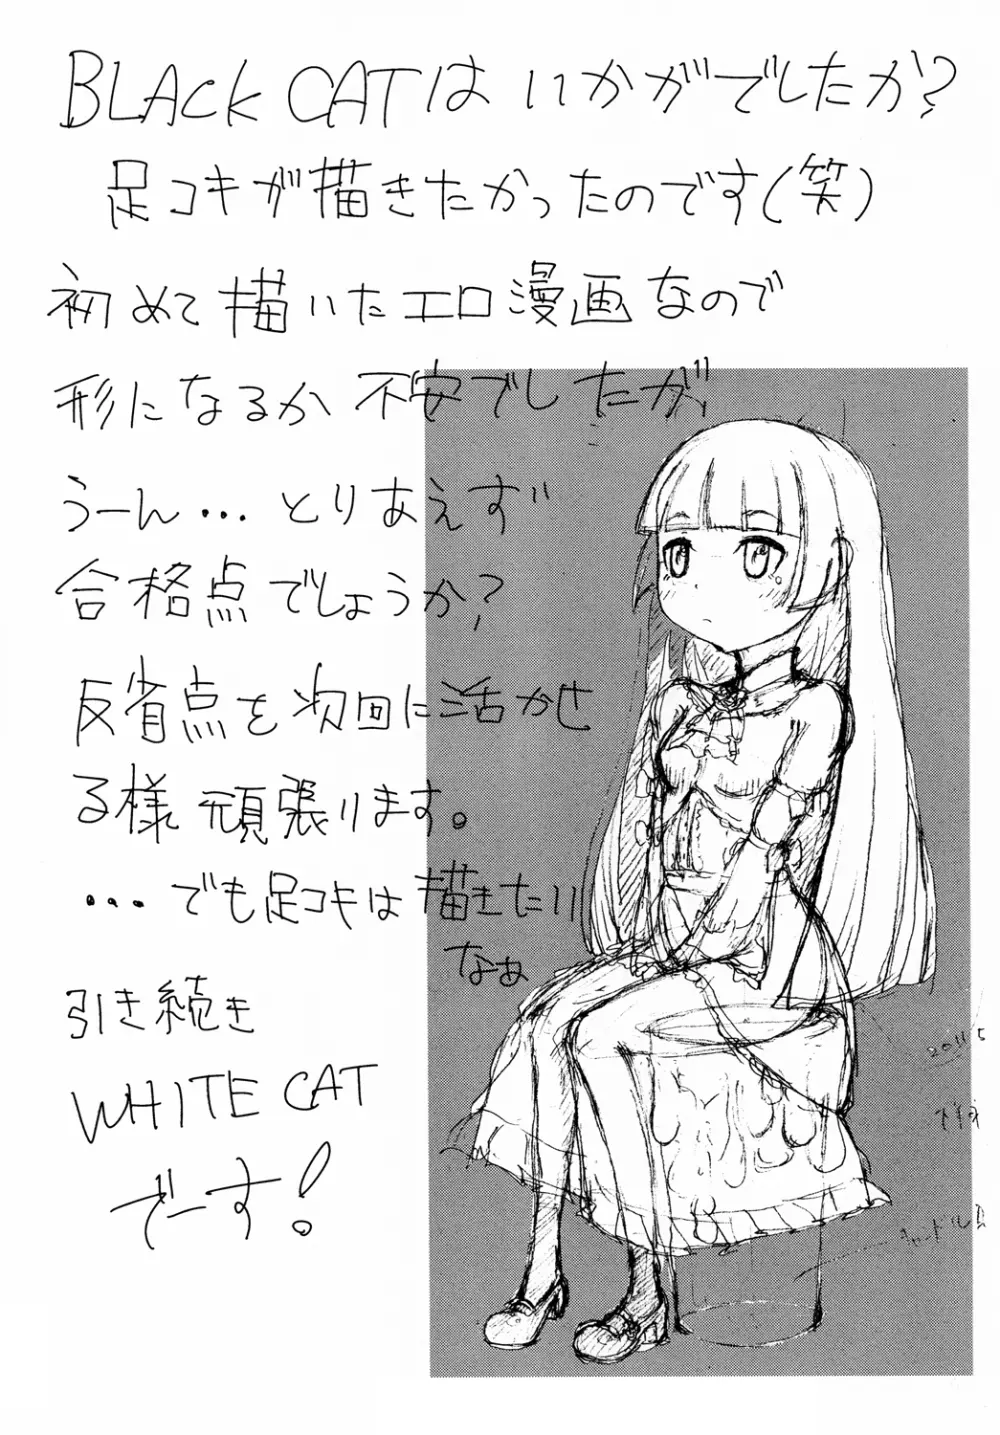 BLACK CATは いかがでしたか?
足コキが描きたかったのです(笑)
初めて描いたエロ漫画なので
形になるか不安でしたが
うーん… とりあえず
合格点でしょうか?
反省点を次回に活かせ
る様頑張ります。
…でも足コキは描きたい
なぁ
引き続き
WHITE CAT
でーす!